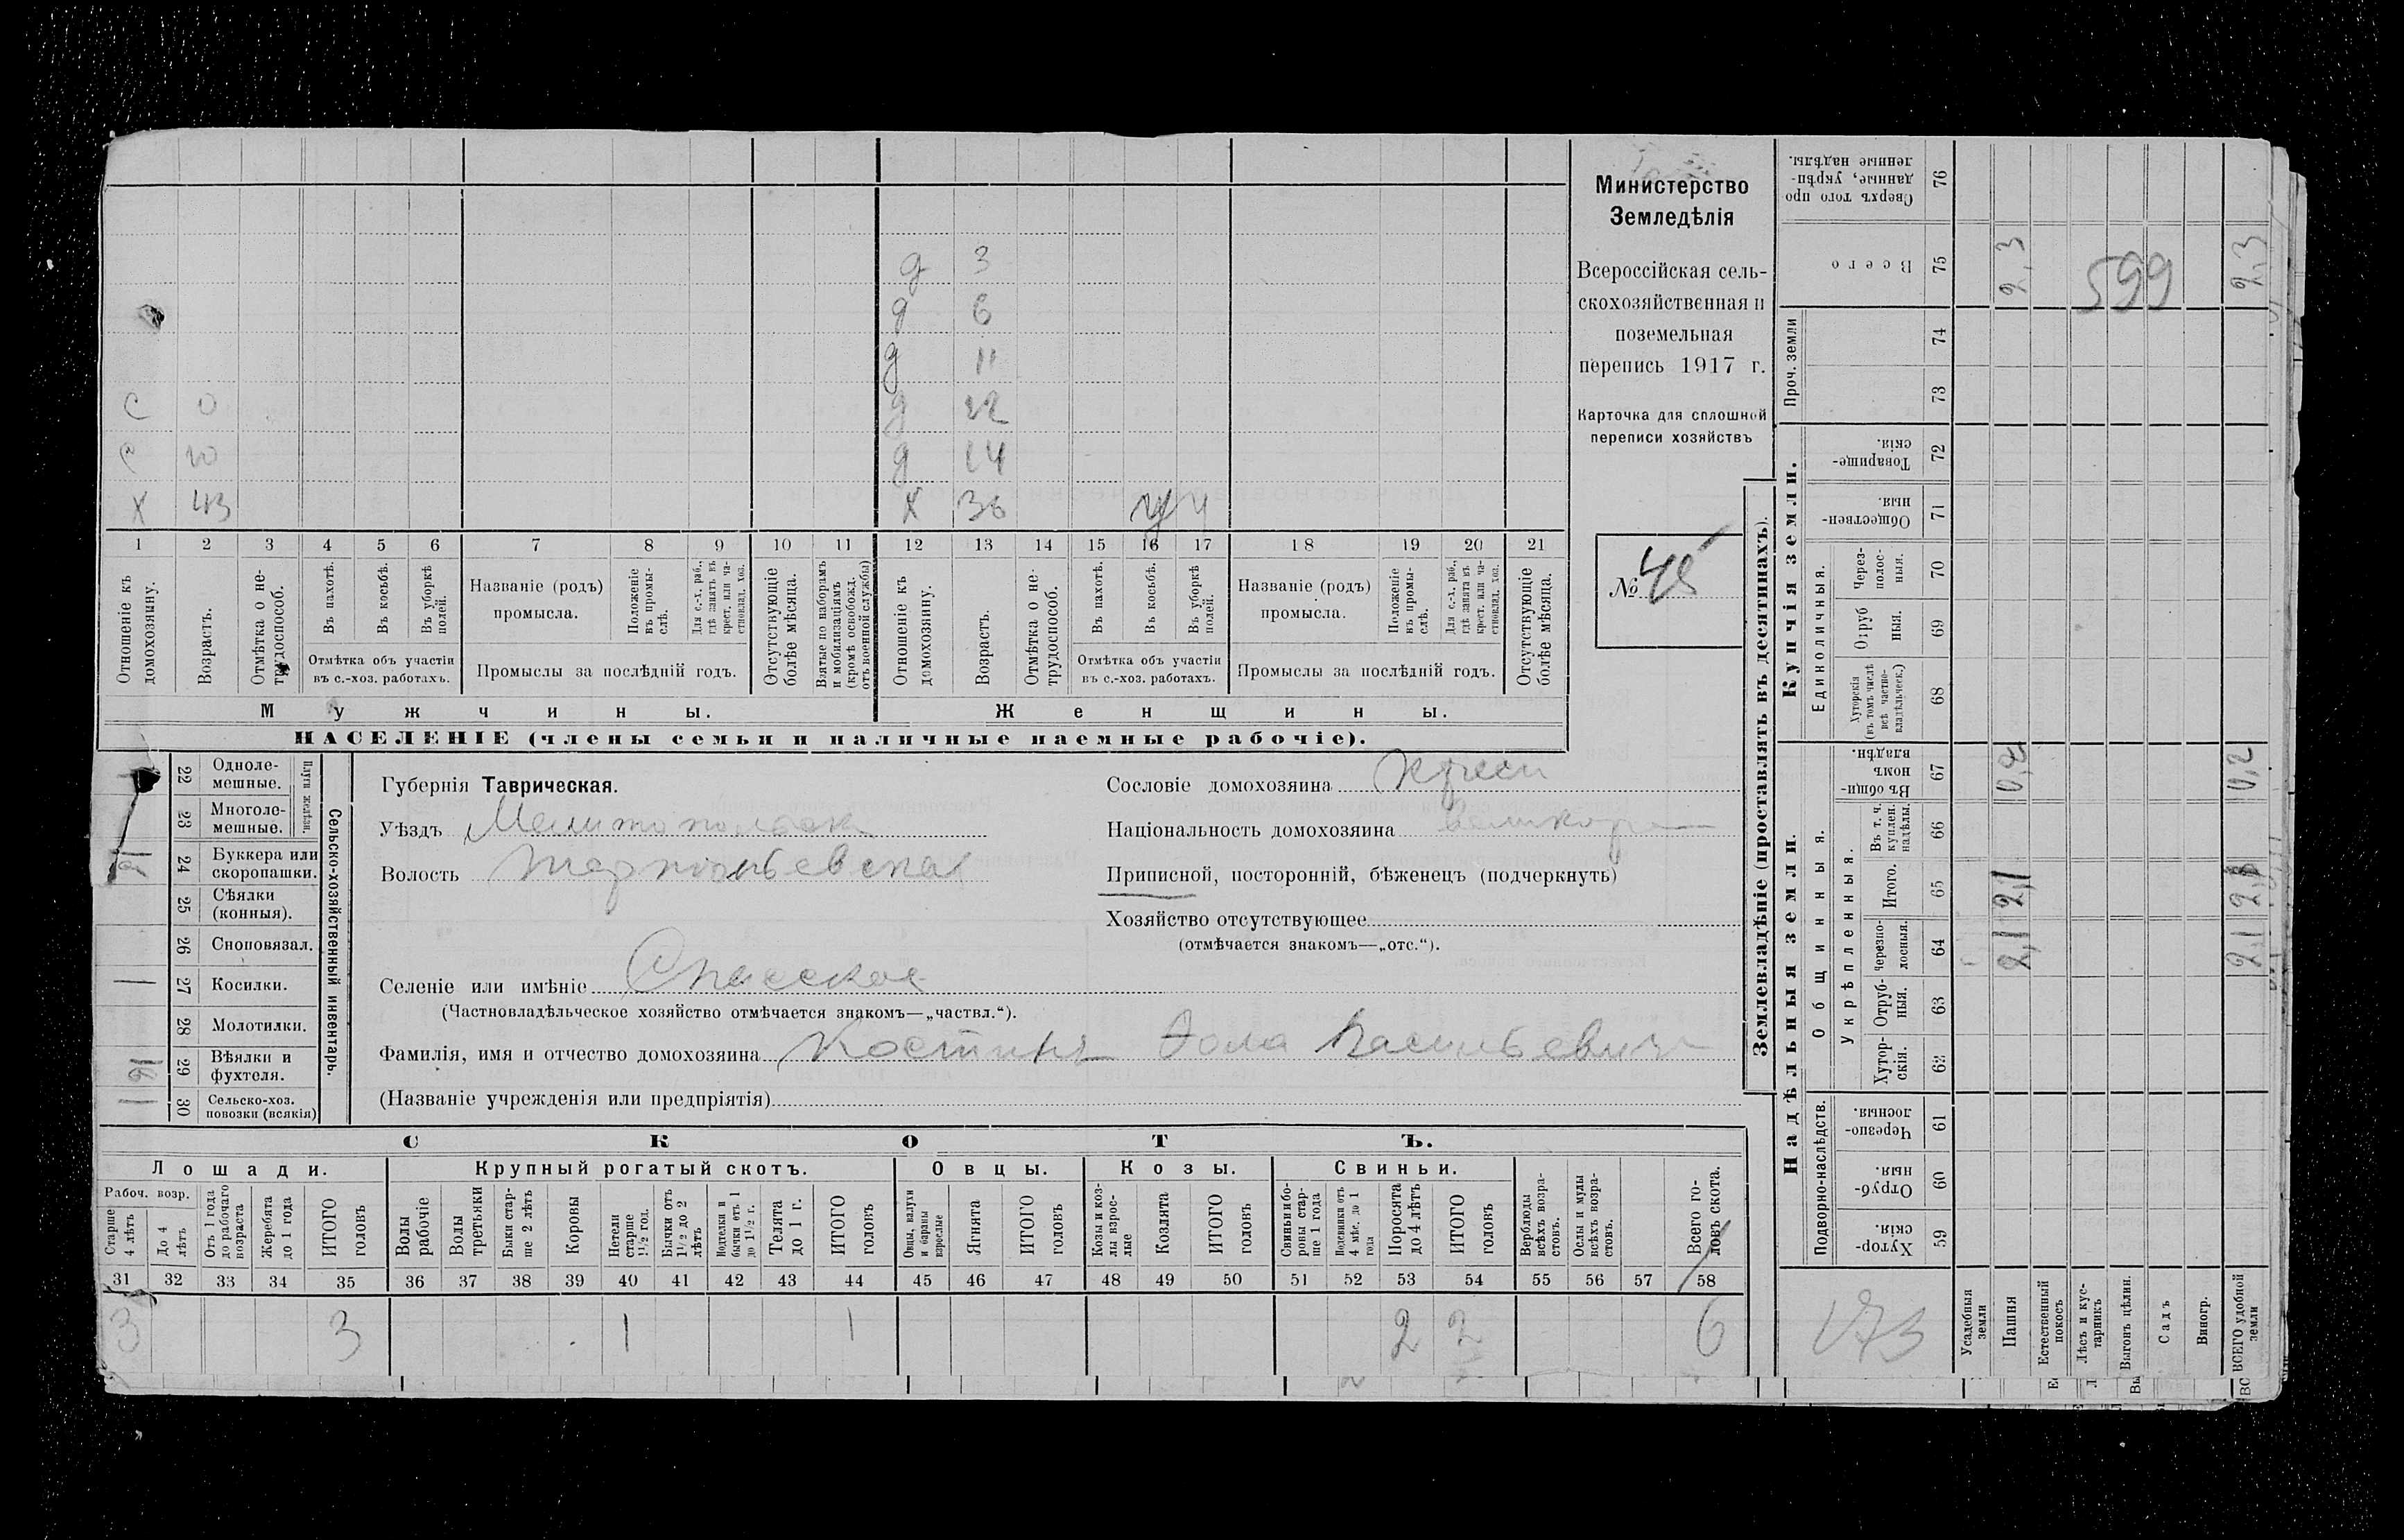 д 3
д 6
д 11
С 0 д 12
С 10 д 14
Х 43 Х 36 ч
1 2 3 4 5 6 7 8 9 10 11 12 13 14 15 16 17 18 19 20 21
Отношеніе къ домохозяину.
Возрастъ.
Отмѣтка о нетрудоспособ.
Въ пахотѣ.
Въ косьбѣ.
Въ уборкѣ полей.
Отмѣтка объ участіи
въ с.-хоз. работахъ.
Названіе (родъ)
промысла.
Положеніе въ промыслѣ.
Для с.-х. раб., гдѣ занятъ въ крест. или частновлад. хоз.
Промыслы за послѣдній годъ.
Отсутствующіе болѣе мѣсяца.
Взятые по наборамъ и мобилизаціямъ (кромѣ освобожд. отъ военной службы)
Отношеніе къ домохозяину.
Возрастъ.
Отмѣтка о нетрудоспособ.
Въ пахотѣ.
Въ косьбѣ.
Въ уборкѣ полей.
Отмѣтка объ участіи
въ с.-хоз. работахъ.
Названіе (родъ)
промысла.
Положеніе въ промыслѣ.
Для с.-х. раб., гдѣ занята въ крест. или частновлад. хоз.
Промыслы за послѣдній годъ.
Отсутствующіе болѣе мѣсяца.
Мужчины.
Женщины.
НАСЕЛЕНІЕ (члены семьи и наличные наемные рабочіе).
Министерство
Земледѣлія
Всероссійская сель-
скохозяйственная и
поземельная
перепись 1917 г.
Карточка для сплошной
переписи хозяйствъ
№ 48
22 Одноле-
мешные.
23 Многоле-
мешные.
Плуги желѣзн.
24 Буккера или
скоропашки.
25 Сѣялки
(конныя).
26 Сноповязал.
27 Косилки. 1
28 Молотилки.
29 Вѣялки и
фухтеля.
30 Сельско-хоз.
повозки (всякія)
Сельско-хозяйственный инвентарь.
Губернія Таврическая.
Уѣздъ Мелитопольск
Волость Терпѣньевская
Селеніе или имѣніе Спасское
(Частновладѣльческое хозяйство отмѣчается знакомъ—„частвл.“).
Фамилія, имя и отчество домохозяина Костинъ Фома Васильевичъ
(Названіе учрежденія или предпріятія)
Сословіе домохозяина Крест
Національность домохозяина великор
Приписной, посторонній, бѣженецъ (подчеркнуть)
Хозяйство отсутствующее
(отмѣчается знакомъ—„отс.“).
СКОТЪ.
Лошади.
Рабоч. возр.
Старше 4 лѣтъ
До 4 лѣтъ
Отъ 1 года до рабочаго возраста
Жеребята до 1 года
ИТОГО головъ
Крупный рогатый скотъ.
Волы рабочіе
Волы третьяки
Быки старше 2 лѣтъ
Коровы
Нетели старше 1 1/2 год.
Бычки отъ 1 1/2 до 2 лѣтъ
Подтелки и бычки отъ 1 до 1 1/2 г.
Телята до 1 г.
ИТОГО головъ
Овцы.
Овцы, валухи и бараны взрослые
Ягнята
ИТОГО головъ
Козы.
Козы и козлы взрослые
Козлята
ИТОГО головъ
Свиньи.
Свиньи и боровы старше 1 года
Подсвинки отъ 4 мѣс. до 1 года
Поросята до 4 лѣтъ
ИТОГО головъ
Верблюды всѣхъ возрастовъ.
Ослы и мулы всѣхъ возрастовъ.
Всего головъ скота.
31 32 33 34 35 36 37 38 39 40 41 42 43 44 45 46 47 48 49 50 51 52 53 54 55 56 57 58
3 3 1 1 2 2 6
Землевладѣніе (проставлять въ десятинахъ).
Купчія земли.
Надѣльныя земли.
Сверхъ того проданные, укрѣпленные надѣлы. 76
Всего 75 2,3 599 2,3
Проч. земли 74
73
Товарищескія. 72
Общественныя. 71
Единоличныя.
Черезполосныя. 70
Отрубныя. 69
Хуторскія (въ томъ числѣ всѣ частновладѣльческ.) 68
Общинныя.
Въ общинномъ владѣн. 67 0,2 0,2
Укрѣпленныя.
Въ т. ч. куплен. надѣлы. 66
Итого. 65 2,1
Черезполосныя. 64 2,1 2,1
Отрубныя. 63
Хуторскія. 62
Подворно-наслѣдств.
Черезполосныя. 61
Отрубныя. 60
Хуторскія. 59
173
Усадебныя земли
Пашня
Естественный покосъ
Лѣсъ и кустарникъ
Выгонъ цѣлин.
Садъ
Виногр.
ВСЕГО удобной земли